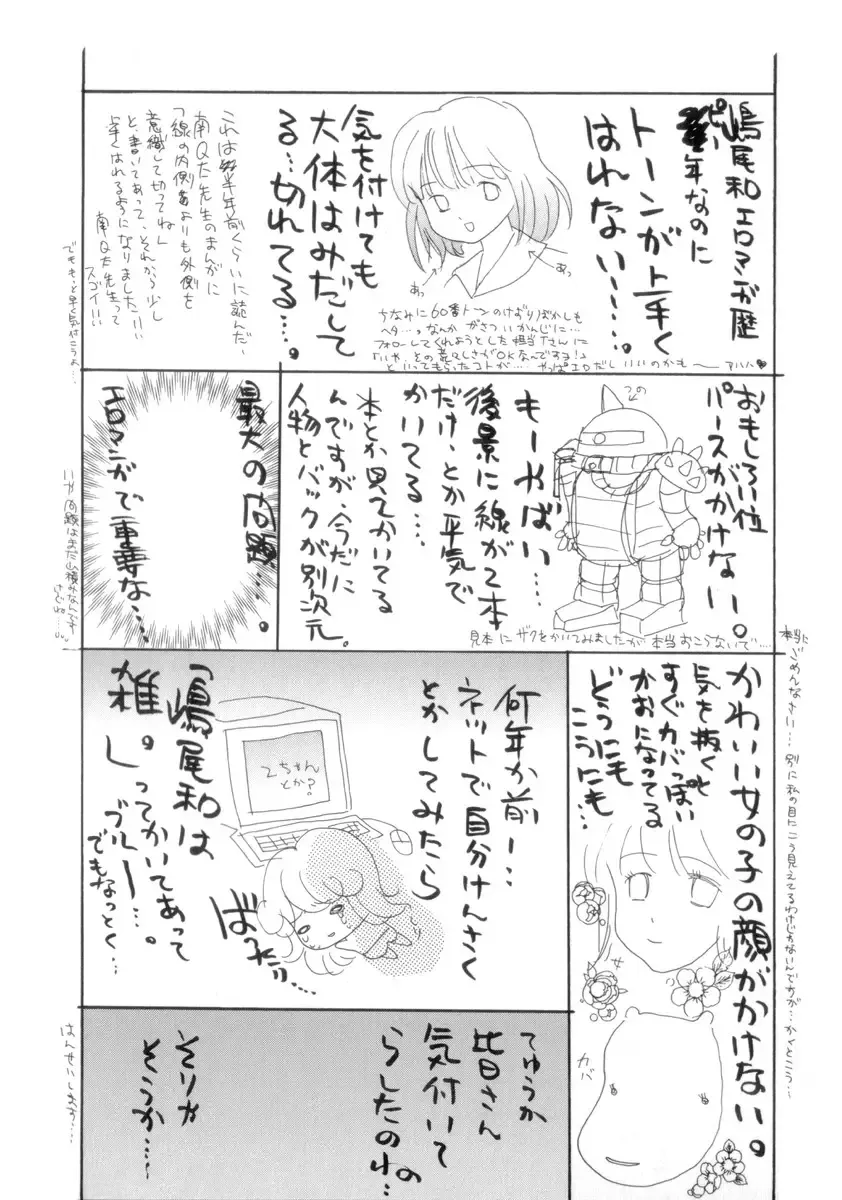 嶋尾和エロマンガ歴
ピー年なのに
トーンが上手く
はれない……。
気を付けても
大体はみだして
る…切れてる…。
あっ
あっ
これは半年前くらいに読んだ、
南Q太先生のまんがに
「線の内側よりも外側を
意識して切ってね」
と、書いてあって、それから少し
上手くはれるようになりました!!!
南Q太先生って
スゴイ!!!
でももっと早く気付こうよ…
ちなみに60番トーンのけずりぼかしも
ヘタ…。なんか がさついかんじに…
フォローしてくれようとした担当Tさんに
「いや、その荒々しさがOKなんですヨ!」
といってもらったコトが…… やっぱエロだしいいのかも〜 アハハ♥
おもしろい位
パースがかけない。
つの
もーやばい……
後景に線が2本
だけ、とか平気で
かいてる…
本とか見てかいてる
んですが、今だに
人物とバックが別次元。
見本にザクをかいてみましたが 本当おこらないで……
最大の問題…。
エロマンガで重要な…
いや問題はまだ山積みなんです
けどね…。
かわいい女の子の顔がかけない。
気を抜くと
すぐカバっぽい
かおになってる
どうにも
こうにも…
女
カバ
本当に
ごめんなさい… 別に私の目にこう見えてるわけじゃないんですが…かくとこう…
何年か前ー…
ネットで自分けんさく
とかしてみたら
2ちゃん
とか?
「嶋尾和は
雑。」ってかいてあって
ブルー…。
でもなっとく…
ばっ
てゆうか
皆さん
気付いて
らしたのね…
の
そりゃ
そうか……
はんせいします……